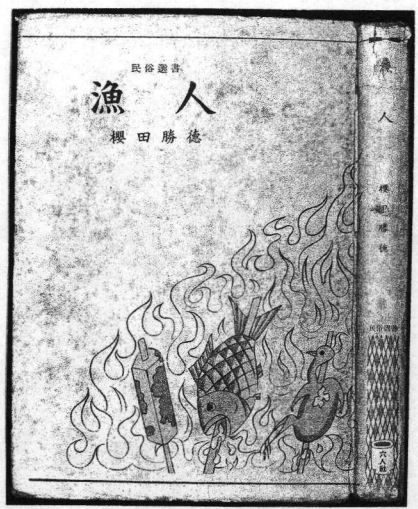 民俗選書
漁人
櫻田勝德
漁人
櫻田勝德
民俗選書
六人社